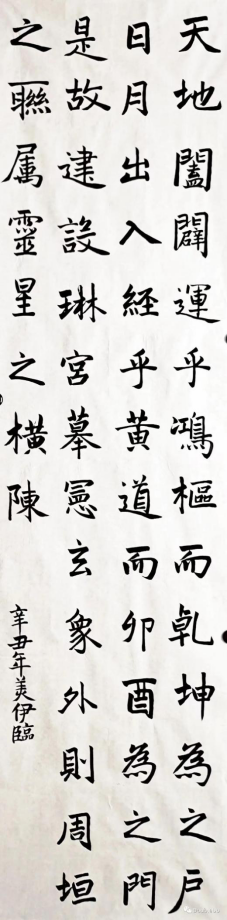 天地闔闢運乎鴻樞而乹坤為之戶
日月出入經乎黃道而卯酉為之門
是故建設琳宮摹憲玄象外則周垣
之聯属靈星之橫陳
辛丑年美伊臨